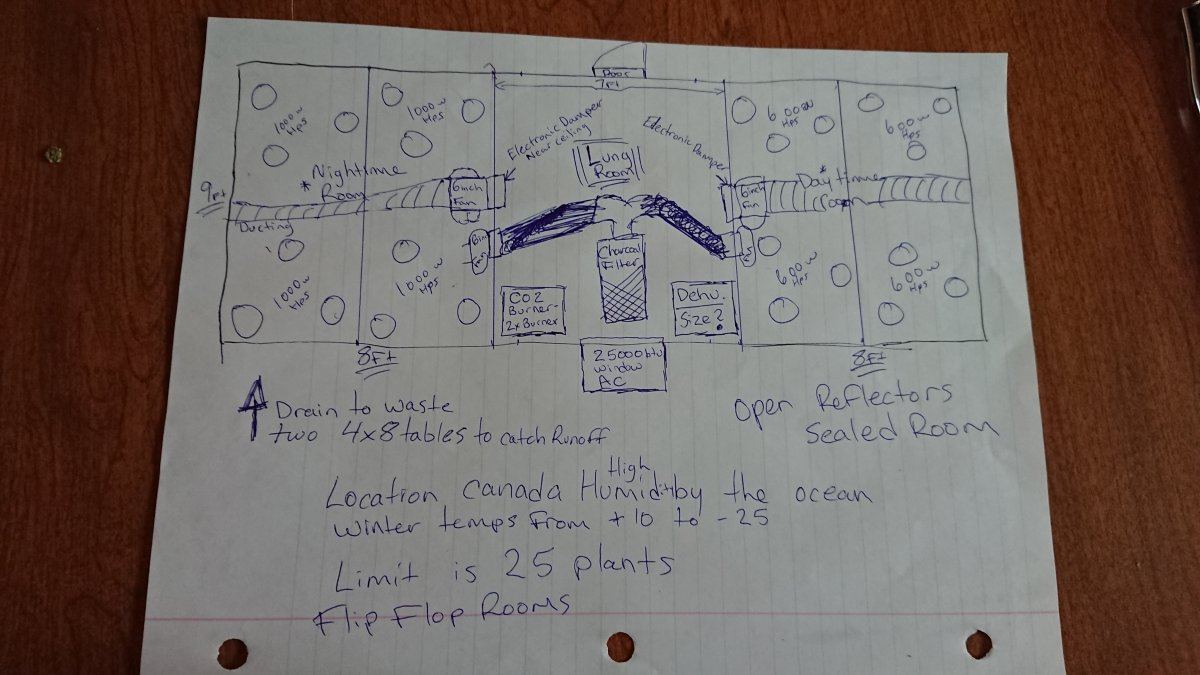 Door
7Ft
1000w
Hps
1000w
Hps
Electronic Damper
Near ceiling
Electronic Damper
600w
Hps
600w
Hps
Lung
Room
* Nightime
Room
6inch
Fan
6inch
Fan
Day*time
room
9Ft
Ducting
1000w
Hps
1000w
Hps
Charcoal
Filter
600w
Hps
600w
Hps
CO2
Burner-
2x Burner
Dehu.
Size?
25000btu
window
AC
8Ft
8Ft
Drain to waste
two 4x8 tables to catch Runoff
Open Reflectors
Sealed Room
Location Canada High Humidity by the ocean
winter temps from +10 to -25
Limit is 25 plants
Flip Flop Rooms